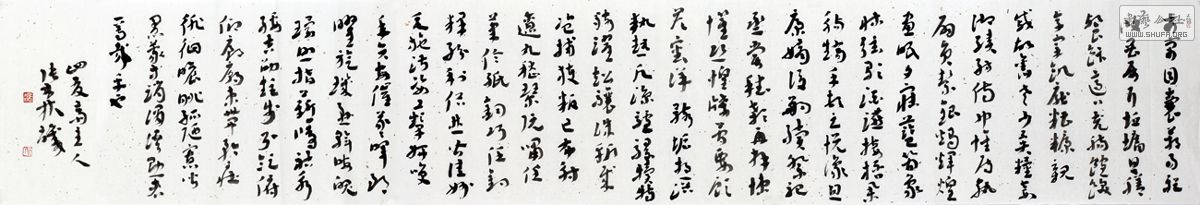 寓目囊箱易輶
攸畏屬耳垣牆具膳
飡飯適口充腸飽飫
烹宰飢厭糟糠親
戚故舊老少異糧妾
御績紡侍巾帷房紈
扇員絜銀燭煒煌
晝眠夕寐藍筍象
牀絃歌酒讌接杯舉
觴矯手頓足悅豫且
康嫡後嗣續祭祀
蒸嘗稽顙再拜悚
懼恐惶牋牒簡要顧
答審詳骸垢想浴
執熱願涼驢騾犢特
駭躍超驤誅斬賊
盜捕獲叛亡布射
遼丸嵇琴阮嘯恬
筆倫紙鈞巧任釣
釋紛利俗並皆佳妙
毛施淑姿工顰妍笑
年矢每催羲暉朗
曜旋璣懸斡晦魄
環照指薪修祜永
綏吉劭矩步引領俯
仰廊廟束帶矜莊
徘徊瞻眺孤陋寡聞
愚蒙等誚謂語助者
焉哉乎也
四友齋主人
WWW.SHUFA.ORG